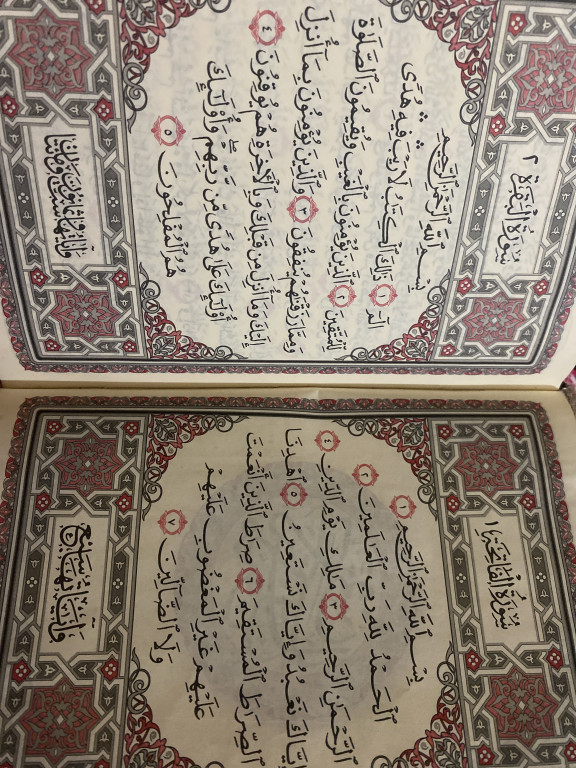 سُورَةُ الْفَاتِحَةِ ١
بِسْمِ ٱللَّهِ ٱلرَّحْمَٰنِ ٱلرَّحِيمِ ١
ٱلْحَمْدُ لِلَّهِ رَبِّ ٱلْعَٰلَمِينَ ٢
ٱلرَّحْمَٰنِ ٱلرَّحِيمِ ٣ مَٰلِكِ يَوْمِ ٱلدِّينِ ٤
إِيَّاكَ نَعْبُدُ وَإِيَّاكَ نَسْتَعِينُ ٥ ٱهْدِنَا
ٱلصِّرَٰطَ ٱلْمُسْتَقِيمَ ٦ صِرَٰطَ ٱلَّذِينَ أَنْعَمْتَ
عَلَيْهِمْ غَيْرِ ٱلْمَغْضُوبِ عَلَيْهِمْ
وَلَا ٱلضَّآلِّينَ ٧
وَآيَاتُهَا سَبْعٌ
سُورَةُ الْبَقَرَةِ ٢
بِسْمِ ٱللَّهِ ٱلرَّحْمَٰنِ ٱلرَّحِيمِ
الٓمٓ ١ ذَٰلِكَ ٱلْكِتَٰبُ لَا رَيْبَ ۛ فِيهِ ۛ هُدًى
لِّلْمُتَّقِينَ ٢ ٱلَّذِينَ يُؤْمِنُونَ بِٱلْغَيْبِ وَيُقِيمُونَ ٱلصَّلَوٰةَ
وَمِمَّا رَزَقْنَٰهُمْ يُنفِقُونَ ٣ وَٱلَّذِينَ يُؤْمِنُونَ بِمَآ أُنزِلَ
إِلَيْكَ وَمَآ أُنزِلَ مِن قَبْلِكَ وَبِٱلْءَاخِرَةِ هُمْ يُوقِنُونَ ٤
أُو۟لَٰٓئِكَ عَلَىٰ هُدًى مِّن رَّبِّهِمْ ۖ وَأُو۟لَٰٓئِكَ
هُمُ ٱلْمُفْلِحُونَ ٥
وَآيَاتُهَا سِتٌّ وَثَمَانُونَ وَمِائَتَانِ